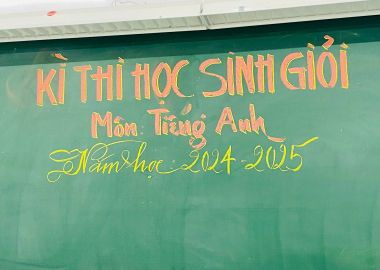 KÌ THI HỌC SINH GIỎI
Môn: Tiếng Anh
Năm học: 2024-2025